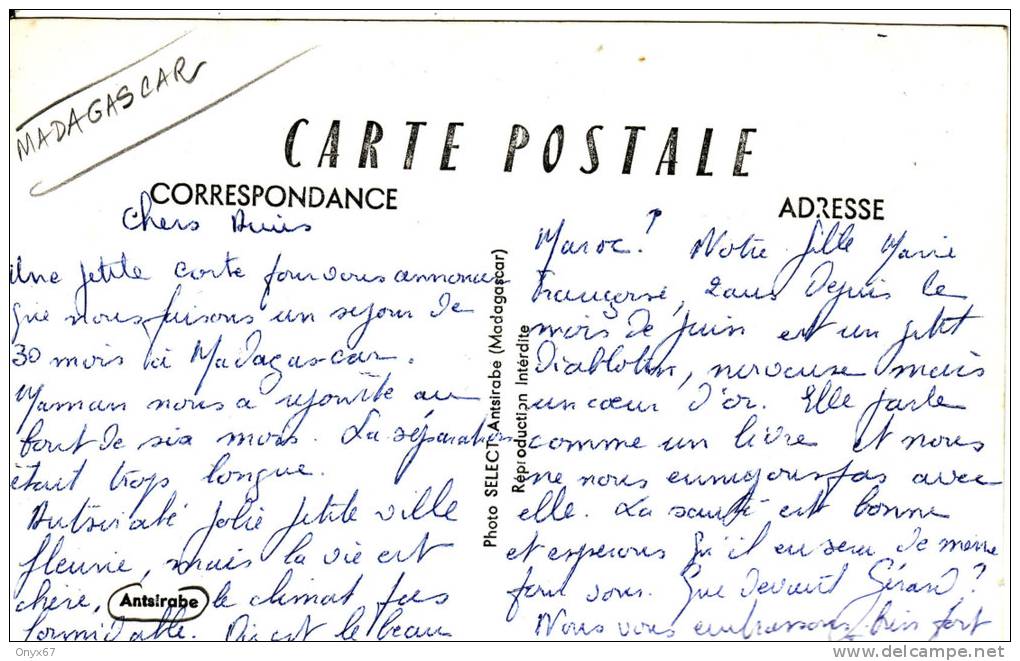 MADAGASCAR
CARTE POSTALE
CORRESPONDANCE
ADRESSE
Chers Amis
Une petite carte pour vous annoncer
que nous faisons un séjour de
30 mois à Madagascar.
Maman nous a rejoint au
bout de six mois. La séparation
était trop longue.
Antsirabé jolie petite ville
fleurie, mais la vie est
chère, le climat pas
formidable. Où est le beau
Antsirabe
Photo SELECT Antsirabe (Madagascar)
Réproduction Intérdite
Maroc? Notre fille Marie
Françoise, 2 ans depuis le
mois de juin est un petit
Diablotin, nerveuse mais
un cœur d'or. Elle parle
comme un livre et nous
ne nous ennuyons pas avec
elle. La santé est bonne
et espérons qu'il en sera de même
pour vous. Que devient Gérard?
Nous vous embrassons bien fort
Onyx67
delcampe.net